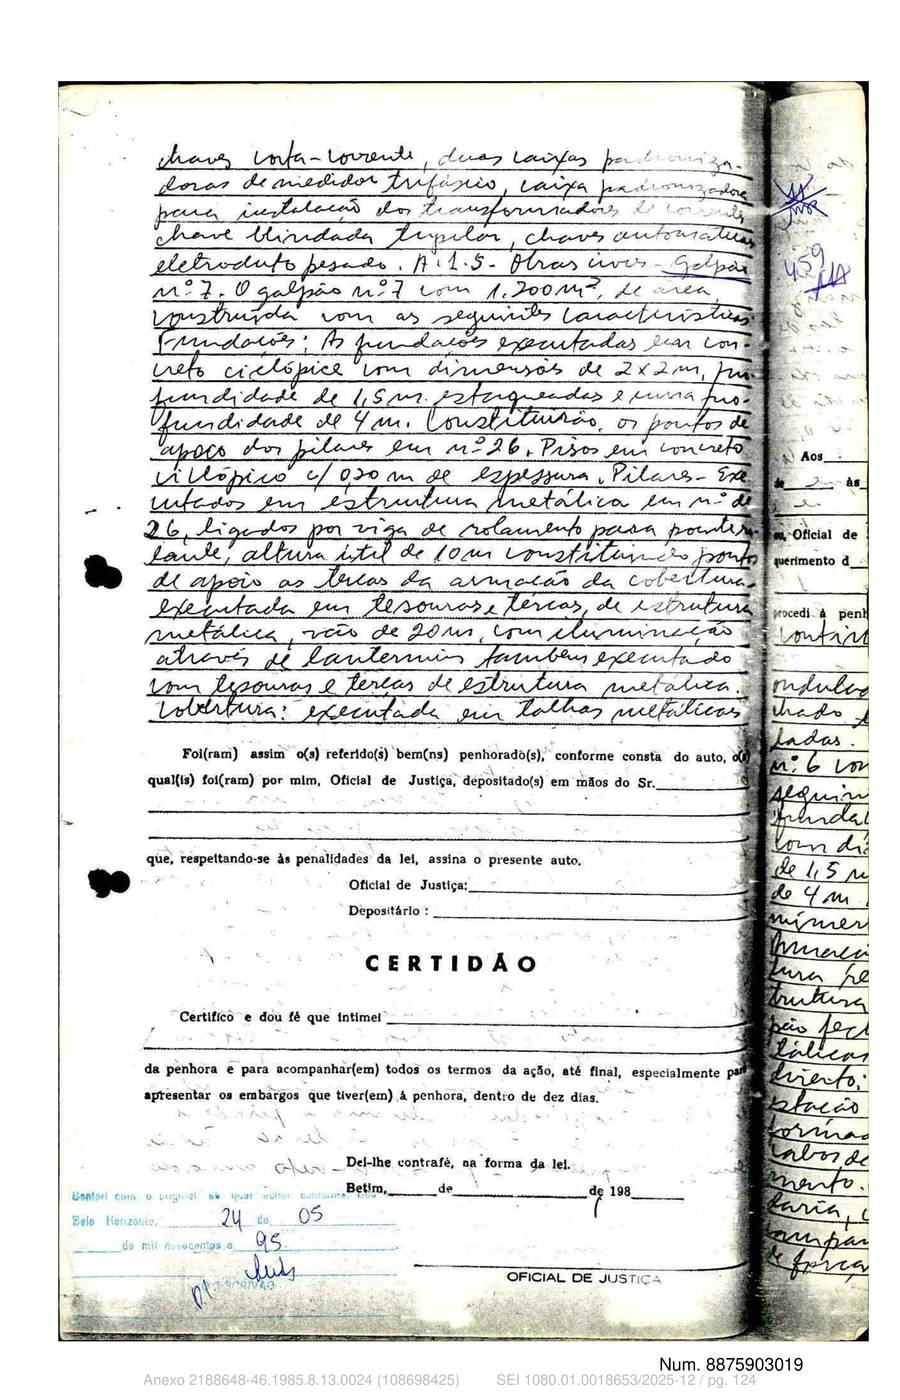 chaves corta-corrente, duas caixas padroniza-
doras de medidor trifásico, caixa padronizadora
para instalação dos transformadores de corrente,
chave blindada tripolar, chaves automáticas
eletroduto pesado. A.1.5- Obras civis- Galpão
nº 7. O galpão nº 7 com 1.200m², de área,
construída com as seguintes características
Fundações: As fundações executadas em con-
creto ciclópico com dimensões de 2x2m, pro-
fundidade de 1,5m. estaqueadas e numa pro-
fundidade de 4m. Constituirão, os pontos de
apoio dos pilares em nº 26. Pisos em concreto
ciclópico c/ 0,20 m de espessura. Pilares- Exe
cutados em estrutura metálica em nº de
26, ligados por viga de rolamento para ponte
altura útil de 10m constituindo ponto
de apoio as terças da armação da cobertura
executada em tesouras e terças, de estrutura
metálica, vão de 20m, com iluminação
através de lanternins também executado
com tesouras e terças de estrutura metálica.
Cobertura: executada em talhas metálicas
Foi(ram) assim o(s) referido(s) bem(ns) penhorado(s), conforme consta do auto, o(s)
qual(is) foi(ram) por mim, Oficial de Justiça, depositado(s) em mãos do Sr.
que, respeitando-se às penalidades da lei, assina o presente auto.
Oficial de Justiça:
Depositário :
CERTIDÃO
Certifico e dou fé que intimei
da penhora e para acompanhar(em) todos os termos da ação, até final, especialmente para
apresentar os embargos que tiver(em) à penhora, dentro de dez dias.
Dei-lhe contrafé, na forma da lei.
Betim, de de 198
OFICIAL DE JUSTIÇA
Belo Horizonte, 24 de 05
de mil novecentos e 95.
ESCRIVÃO
459
Aos
às
Oficial de
querimento d
procedi à penh
ondulad
hado
ladas.
nº 6 con
seguin
fundaç
com di
de 1,5 m
de 4m
númer
trutura
tálicas
mento.
de força
Num. 8875903019
Anexo 2188648-46.1985.8.13.0024 (108698425) SEI 1080.01.0018653/2025-12 / pg. 124